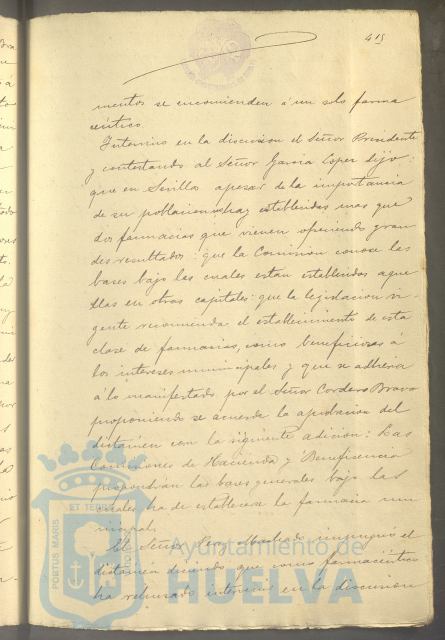 415
mentos se encomienden á un solo farma
céutico.
Intervino en la discusion el Señor Presidente
y contestando al Señor Garcia Lopez dijo:
que en Sevilla apesar de la importancia
de su poblacion no hay establecidas mas que
dos farmacias que vienen ofreciendo gran
des resultados: que la Comision conoce las
bases bajo las cuales estan establecidas aque
llas en otras capitales: que la legislacion vi-
gente recomienda el establecimiento de esta
clase de farmacias, como beneficiosas a
los intereses municipales y que se adheria
á lo manifestado por el Señor Cordero Bravo
proponiendo se acuerde la aprobacion del
dictámen con la siguiente adicion: Las
Comisiones de Hacienda y Beneficencia
propondrán las bases generales bajo las
cuales ha de establecerse la farmacia mu
nicipal.
El Señor Machado impugnó el
dictámen diciendo que como farmacéutico
ha rehusado intervenir en la discusion
PORTUS MARIS ET TERRAE
Ayuntamiento de
HUELVA